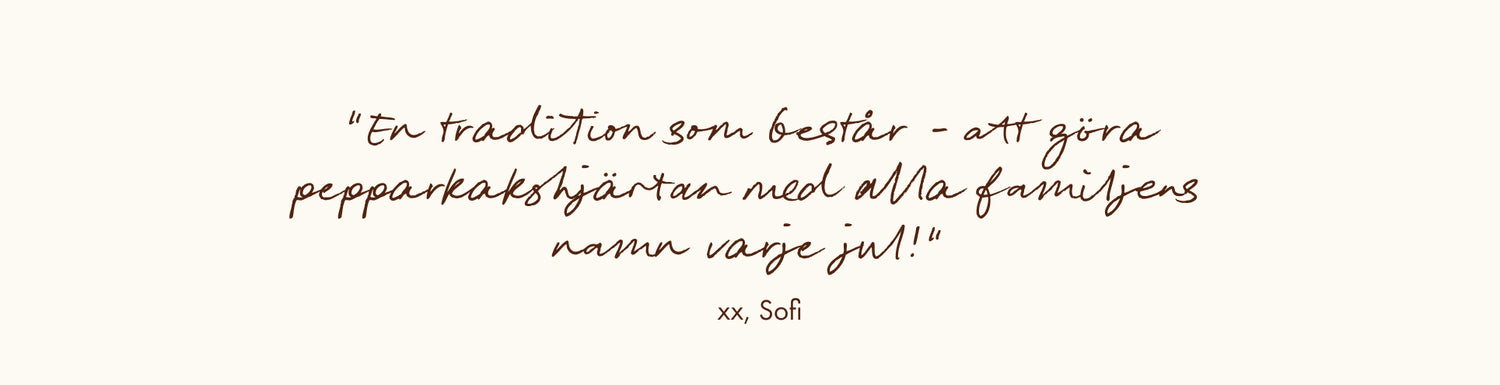 "En tradition som består - att göra
pepparkakshjärtan med alla familjens
namn varje jul!"
xx, Sofi